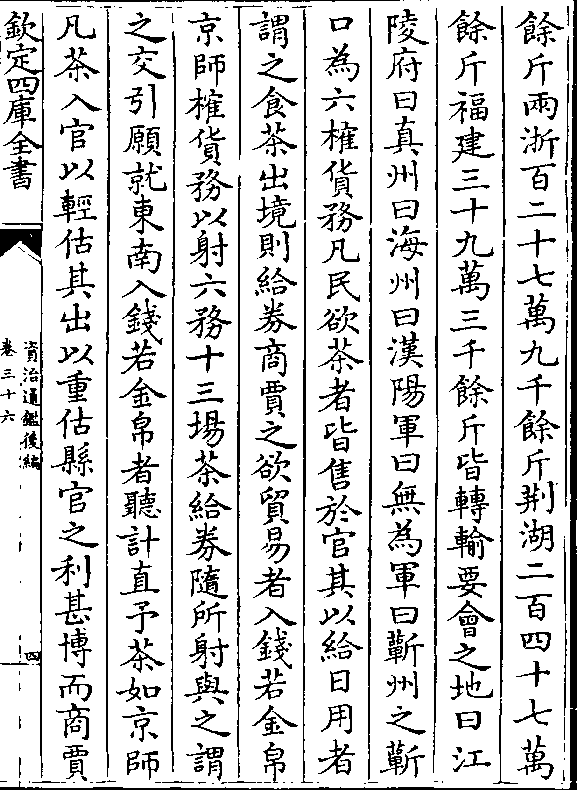 餘斤兩浙百二十七萬九千餘斤荆湖二百四十七萬
餘斤福建三十九萬三千餘斤皆轉輸要會之地曰江
陵府曰真州曰海州曰漢陽軍曰無為軍曰蘄州之蘄
口為六榷貨務凡民欲茶者皆售於官其以給日用者
謂之食茶出境則給券商賈之欲貿易者入錢若金帛
京師榷貨務以射六務十三場茶給券隨所射與之謂
之交引願就東南入錢若金帛者聽計直予茶如京師
凡茶入官以輕估其出以重估縣官之利甚博而商賈
欽定四庫全書
資治通鑑後編
卷三十六
四